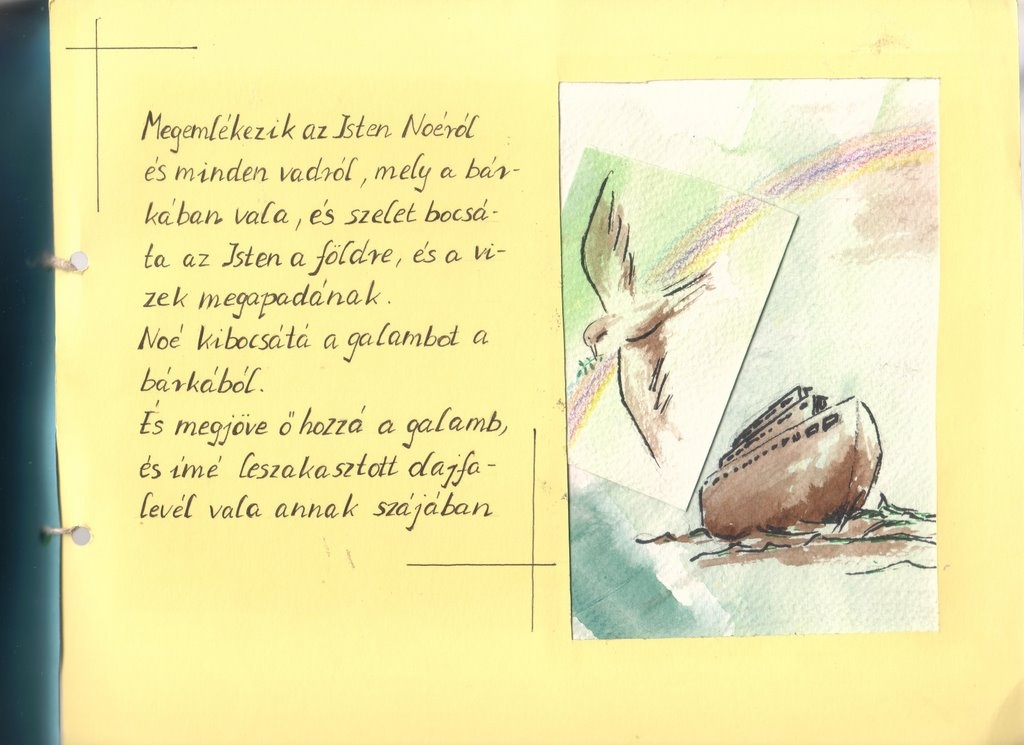 Megemlékezik az Isten Noéról
és minden vadról, mely a bár-
kában vala, és szelet bocsá-
ta az Isten a földre, és a vi-
zek megapadának.
Noé kibocsátá a galambot a
bárkából.
És megjöve ő hozzá a galamb,
és ímé leszakasztott olajfa-
levél vala annak szájában